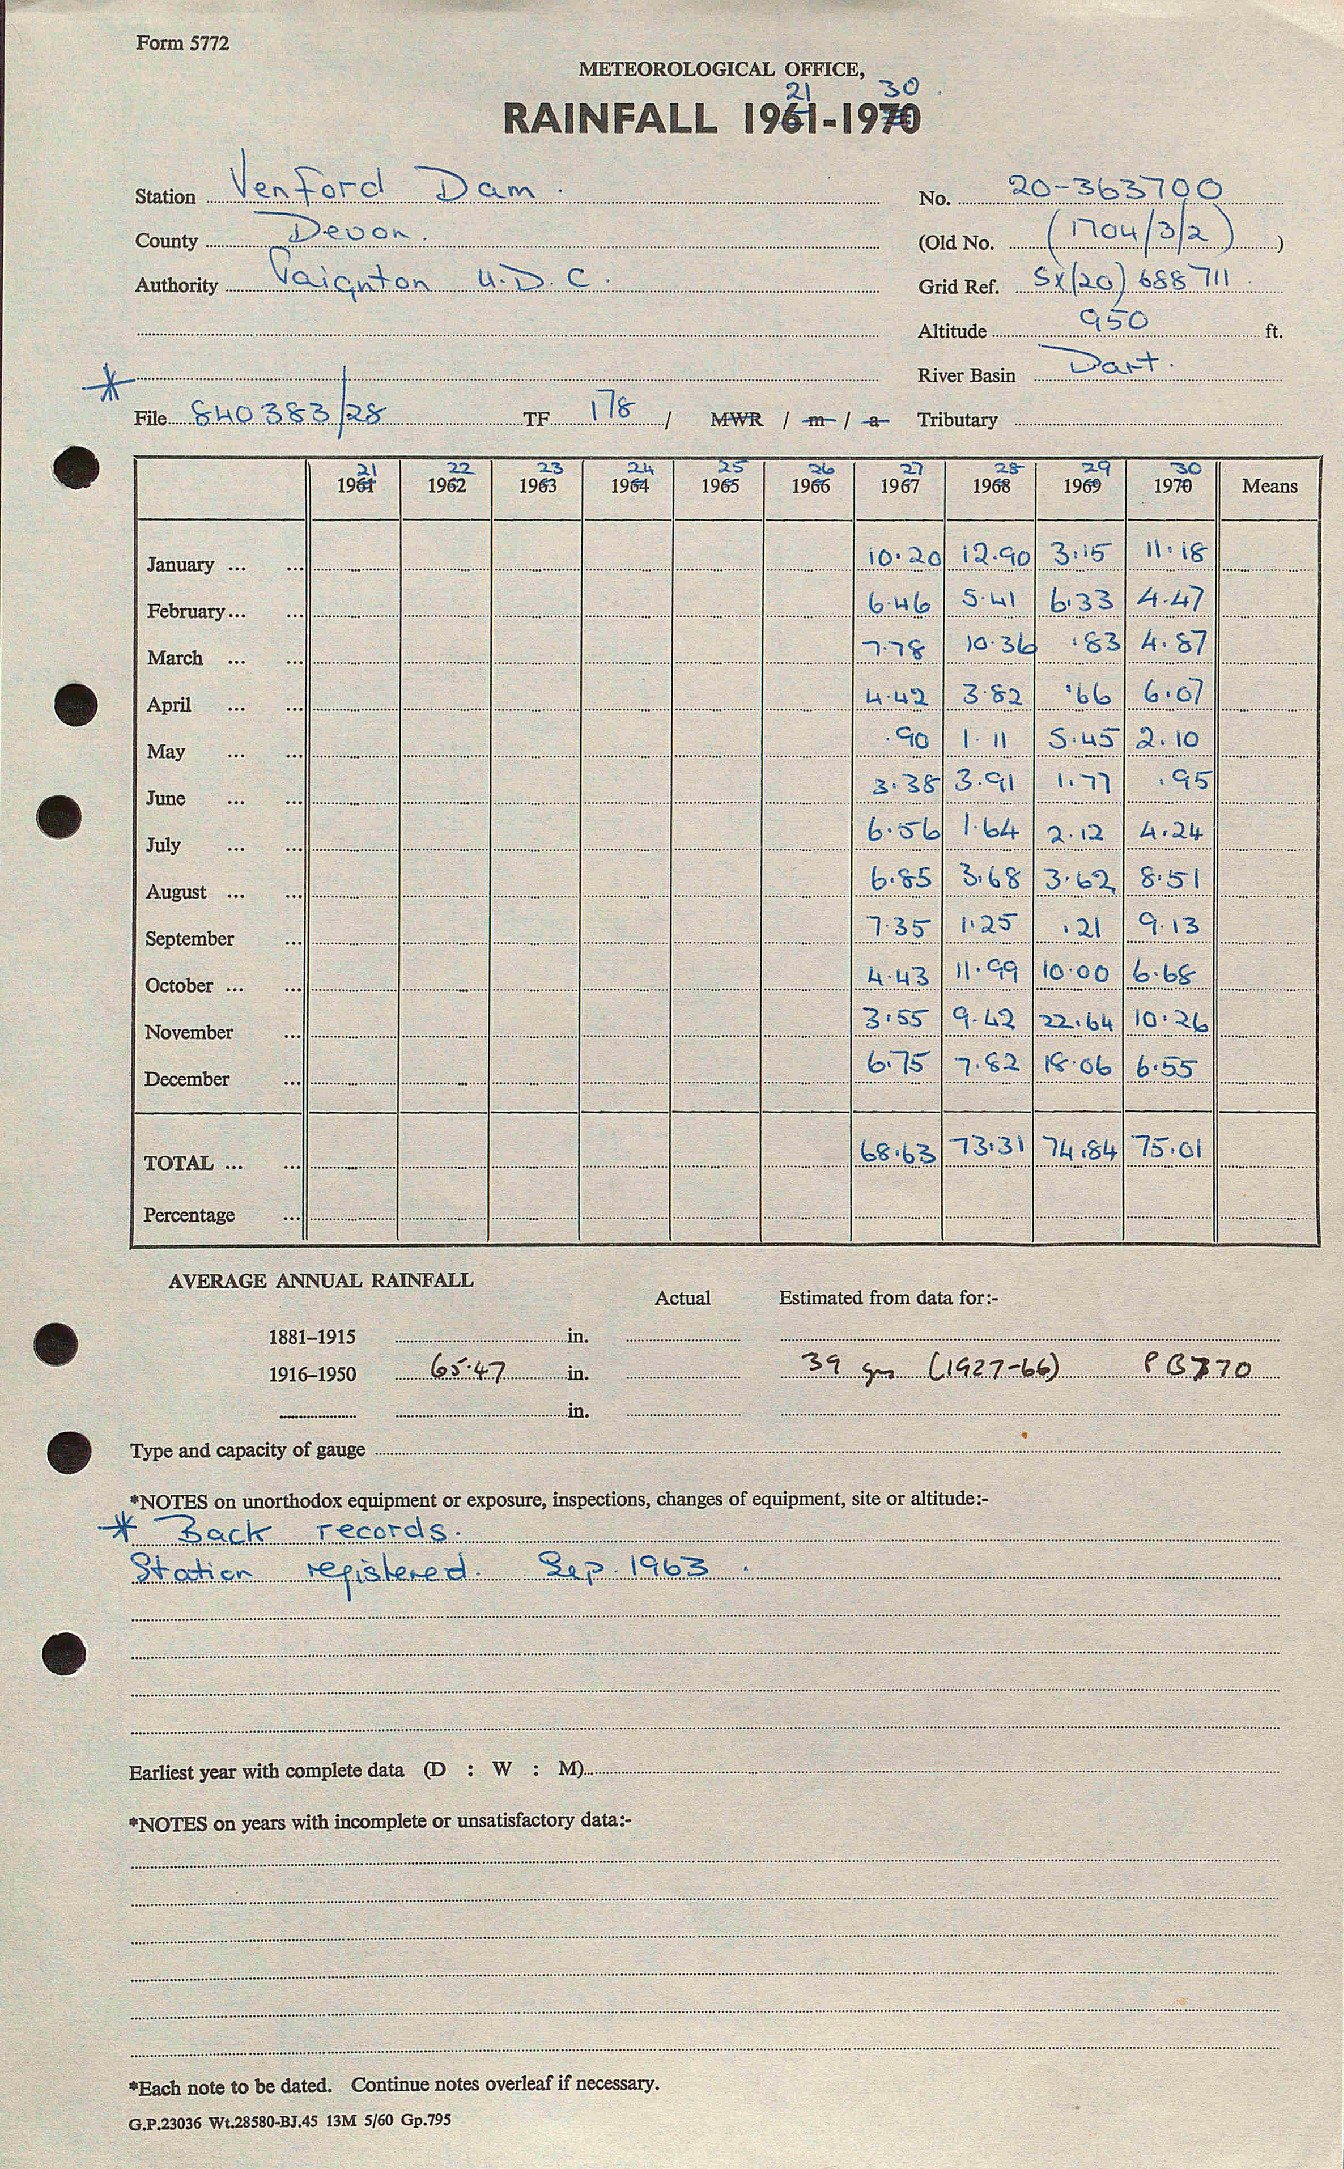 Form 5772
METEOROLOGICAL OFFICE,
21 30
RAINFALL 1961-1970
Station Venford Dam. No. 20-363700
County Devon. (Old No. (1704/3/2) )
Authority Paignton U.D.C. Grid Ref. SX(20) 688711.
Altitude 950 ft.
* River Basin Dart.
File 840383/28 TF 178 / MWR / m / a Tributary
21 22 23 24 25 26 27 28 29 30
1961 1962 1963 1964 1965 1966 1967 1968 1969 1970 Means
January ... ... 10.20 12.90 3.15 11.18
February ... ... 6.46 5.41 6.33 4.47
March ... ... 7.78 10.36 .83 4.87
April ... ... 4.42 3.82 .66 6.07
May ... ... .90 1.11 5.45 2.10
June ... ... 3.38 3.91 1.77 .95
July ... ... 6.56 1.64 2.12 4.24
August ... ... 6.85 3.68 3.62 8.51
September ... 7.35 1.25 .21 9.13
October ... ... 4.43 11.99 10.00 6.68
November ... 3.55 9.42 22.64 10.26
December ... 6.75 7.82 18.06 6.55
TOTAL ... ... 68.63 73.31 74.84 75.01
Percentage ...
AVERAGE ANNUAL RAINFALL
Actual Estimated from data for:-
1881-1915 in.
1916-1950 65.47 in. 39 yrs (1927-66)
in.
Type and capacity of gauge
*NOTES on unorthodox equipment or exposure, inspections, changes of equipment, site or altitude:-
* Back records.
Station registered. Sep. 1963.
Earliest year with complete data (D : W : M)
*NOTES on years with incomplete or unsatisfactory data:-
*Each note to be dated. Continue notes overleaf if necessary.
G.P.23036 Wt.28580-BJ.45 13M 5/60 Gp.795